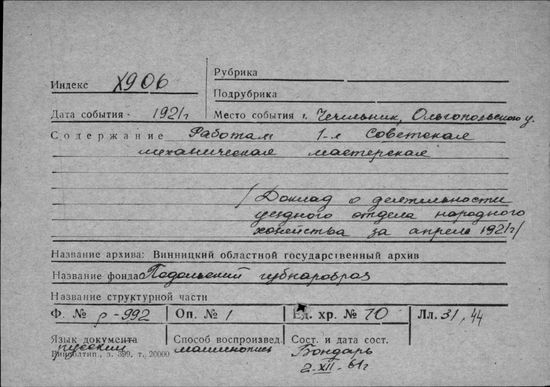 Рубрика
Индекс X906
Подрубрика
Дата события 1921г Место события г. Чечельник, Ольгопольского у.
Содержание Работает 1-я Советская
механическая мастерская
/Доклад о деятельности
уездного отдела народного
хозяйства за апрель 1921г/
Название архива: Винницкий областной государственный архив
Название фонда Подольский губнаробраз
Название структурной части
Ф. № р-992 Оп. № 1 Ед. хр. № 70 Лл. 31, 44
Язык документа Способ воспроизвед. Сост. и дата сост.
русский машинопись Бондарь
Виноблтип., з. 399, т. 20000 2.XII.61г